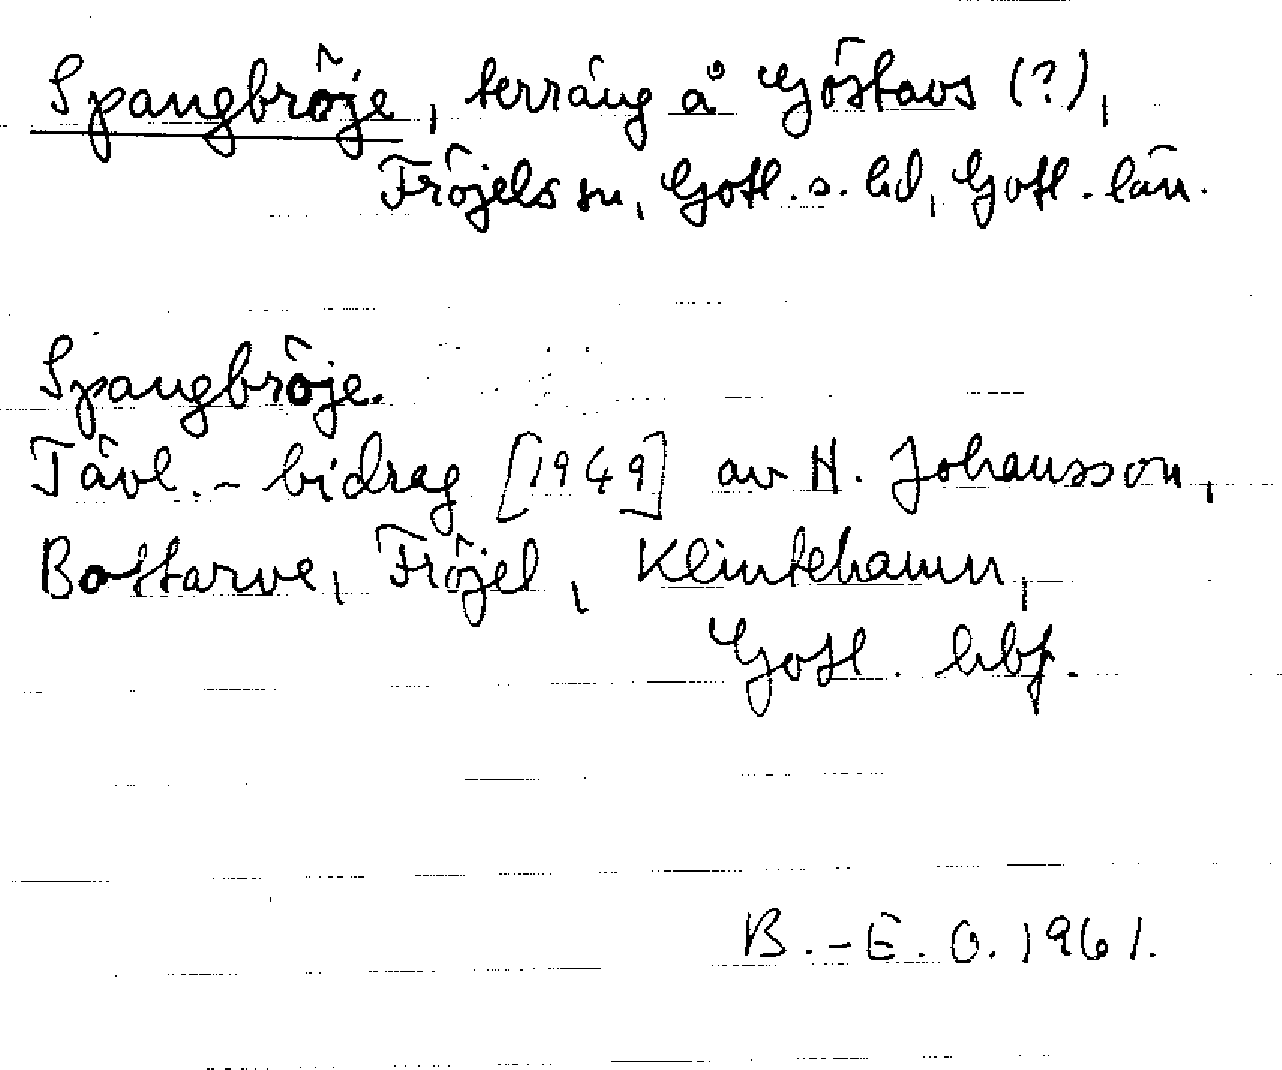 Spangbröje, terräng å Göstavs (?),
Fröjels sn, Gotl. s. hd, Gotl. län.
Spangbröje.
Tävl.-bidrag [1949] av H. Johansson,
Bottarve, Fröjel, Klintehamn,
Gotl. hbf.
B.-E. O. 1961.